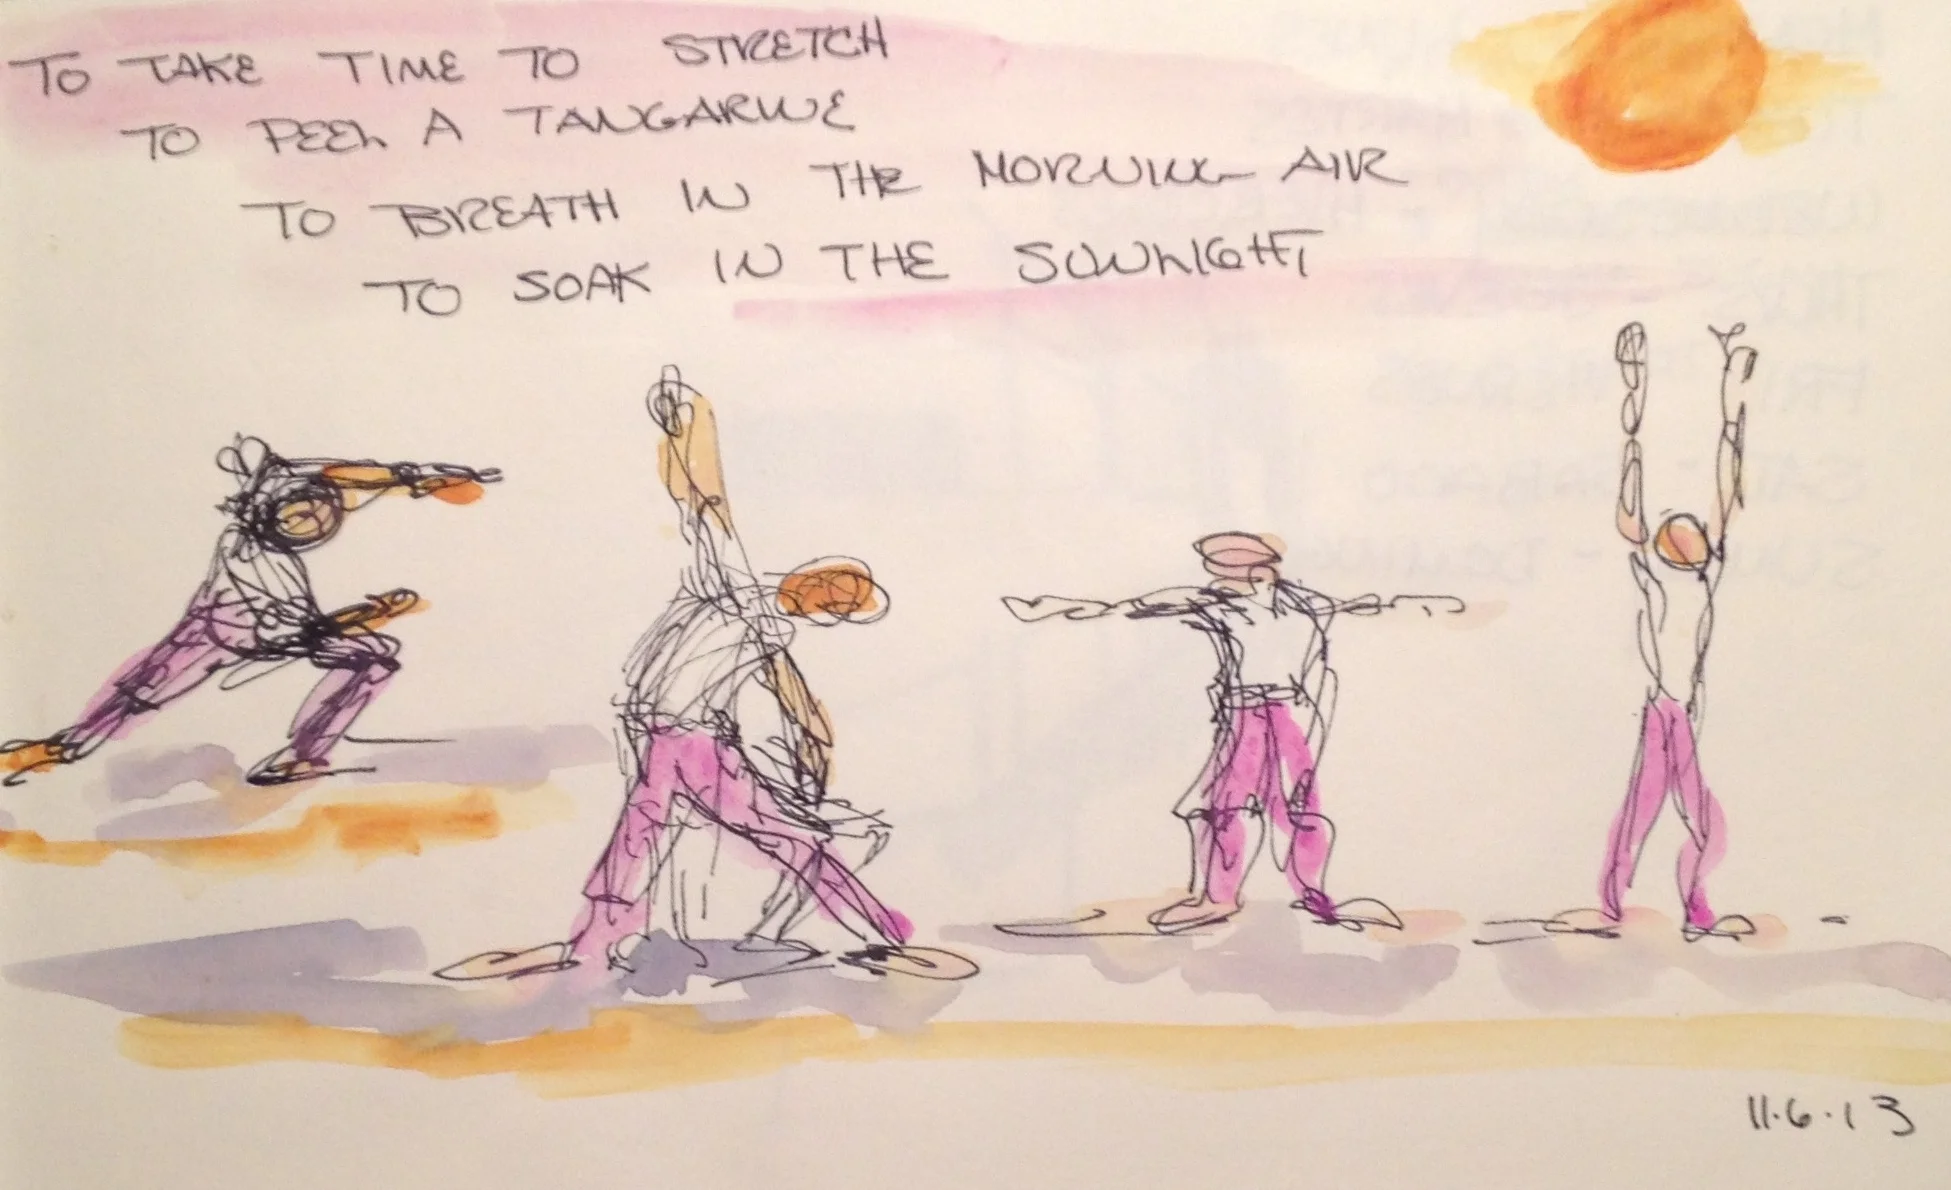 TO TAKE TIME TO STRETCH
TO PEEL A TANGARINE
TO BREATH IN THE MORNING AIR
TO SOAK IN THE SUNLIGHT
11.6.13